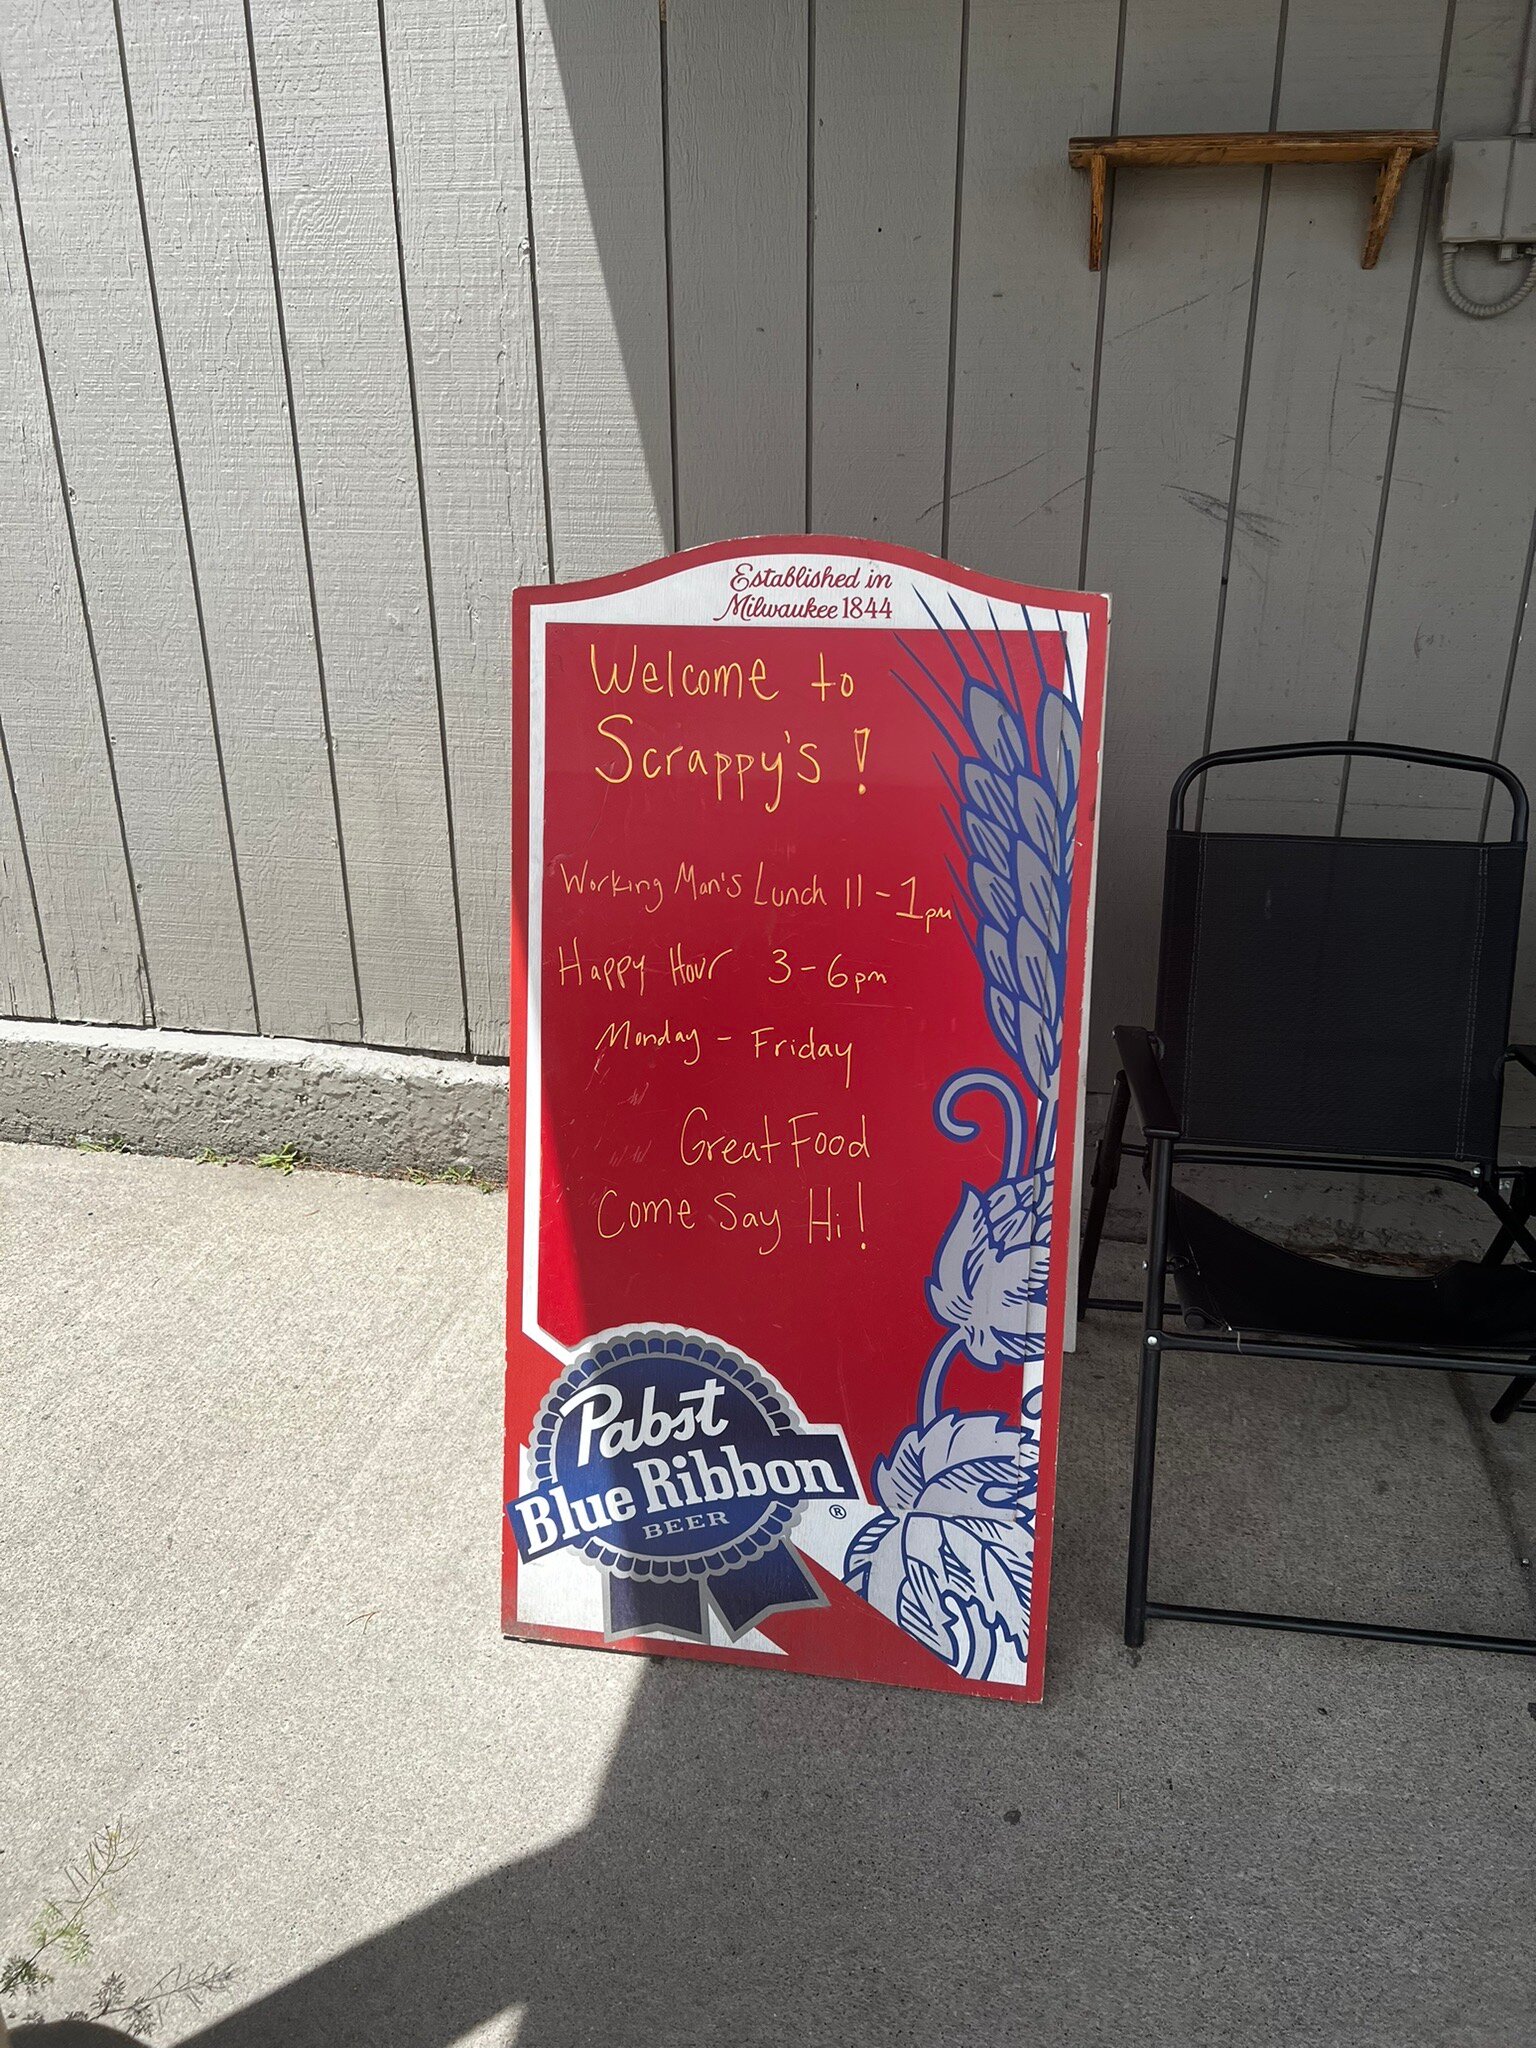 Established in
Milwaukee 1844
Welcome to
Scrappy's!
Working Man's Lunch 11-1pm
Happy Hour 3-6pm
Monday - Friday
Great Food
Come Say Hi!
Pabst
Blue Ribbon
BEER ®